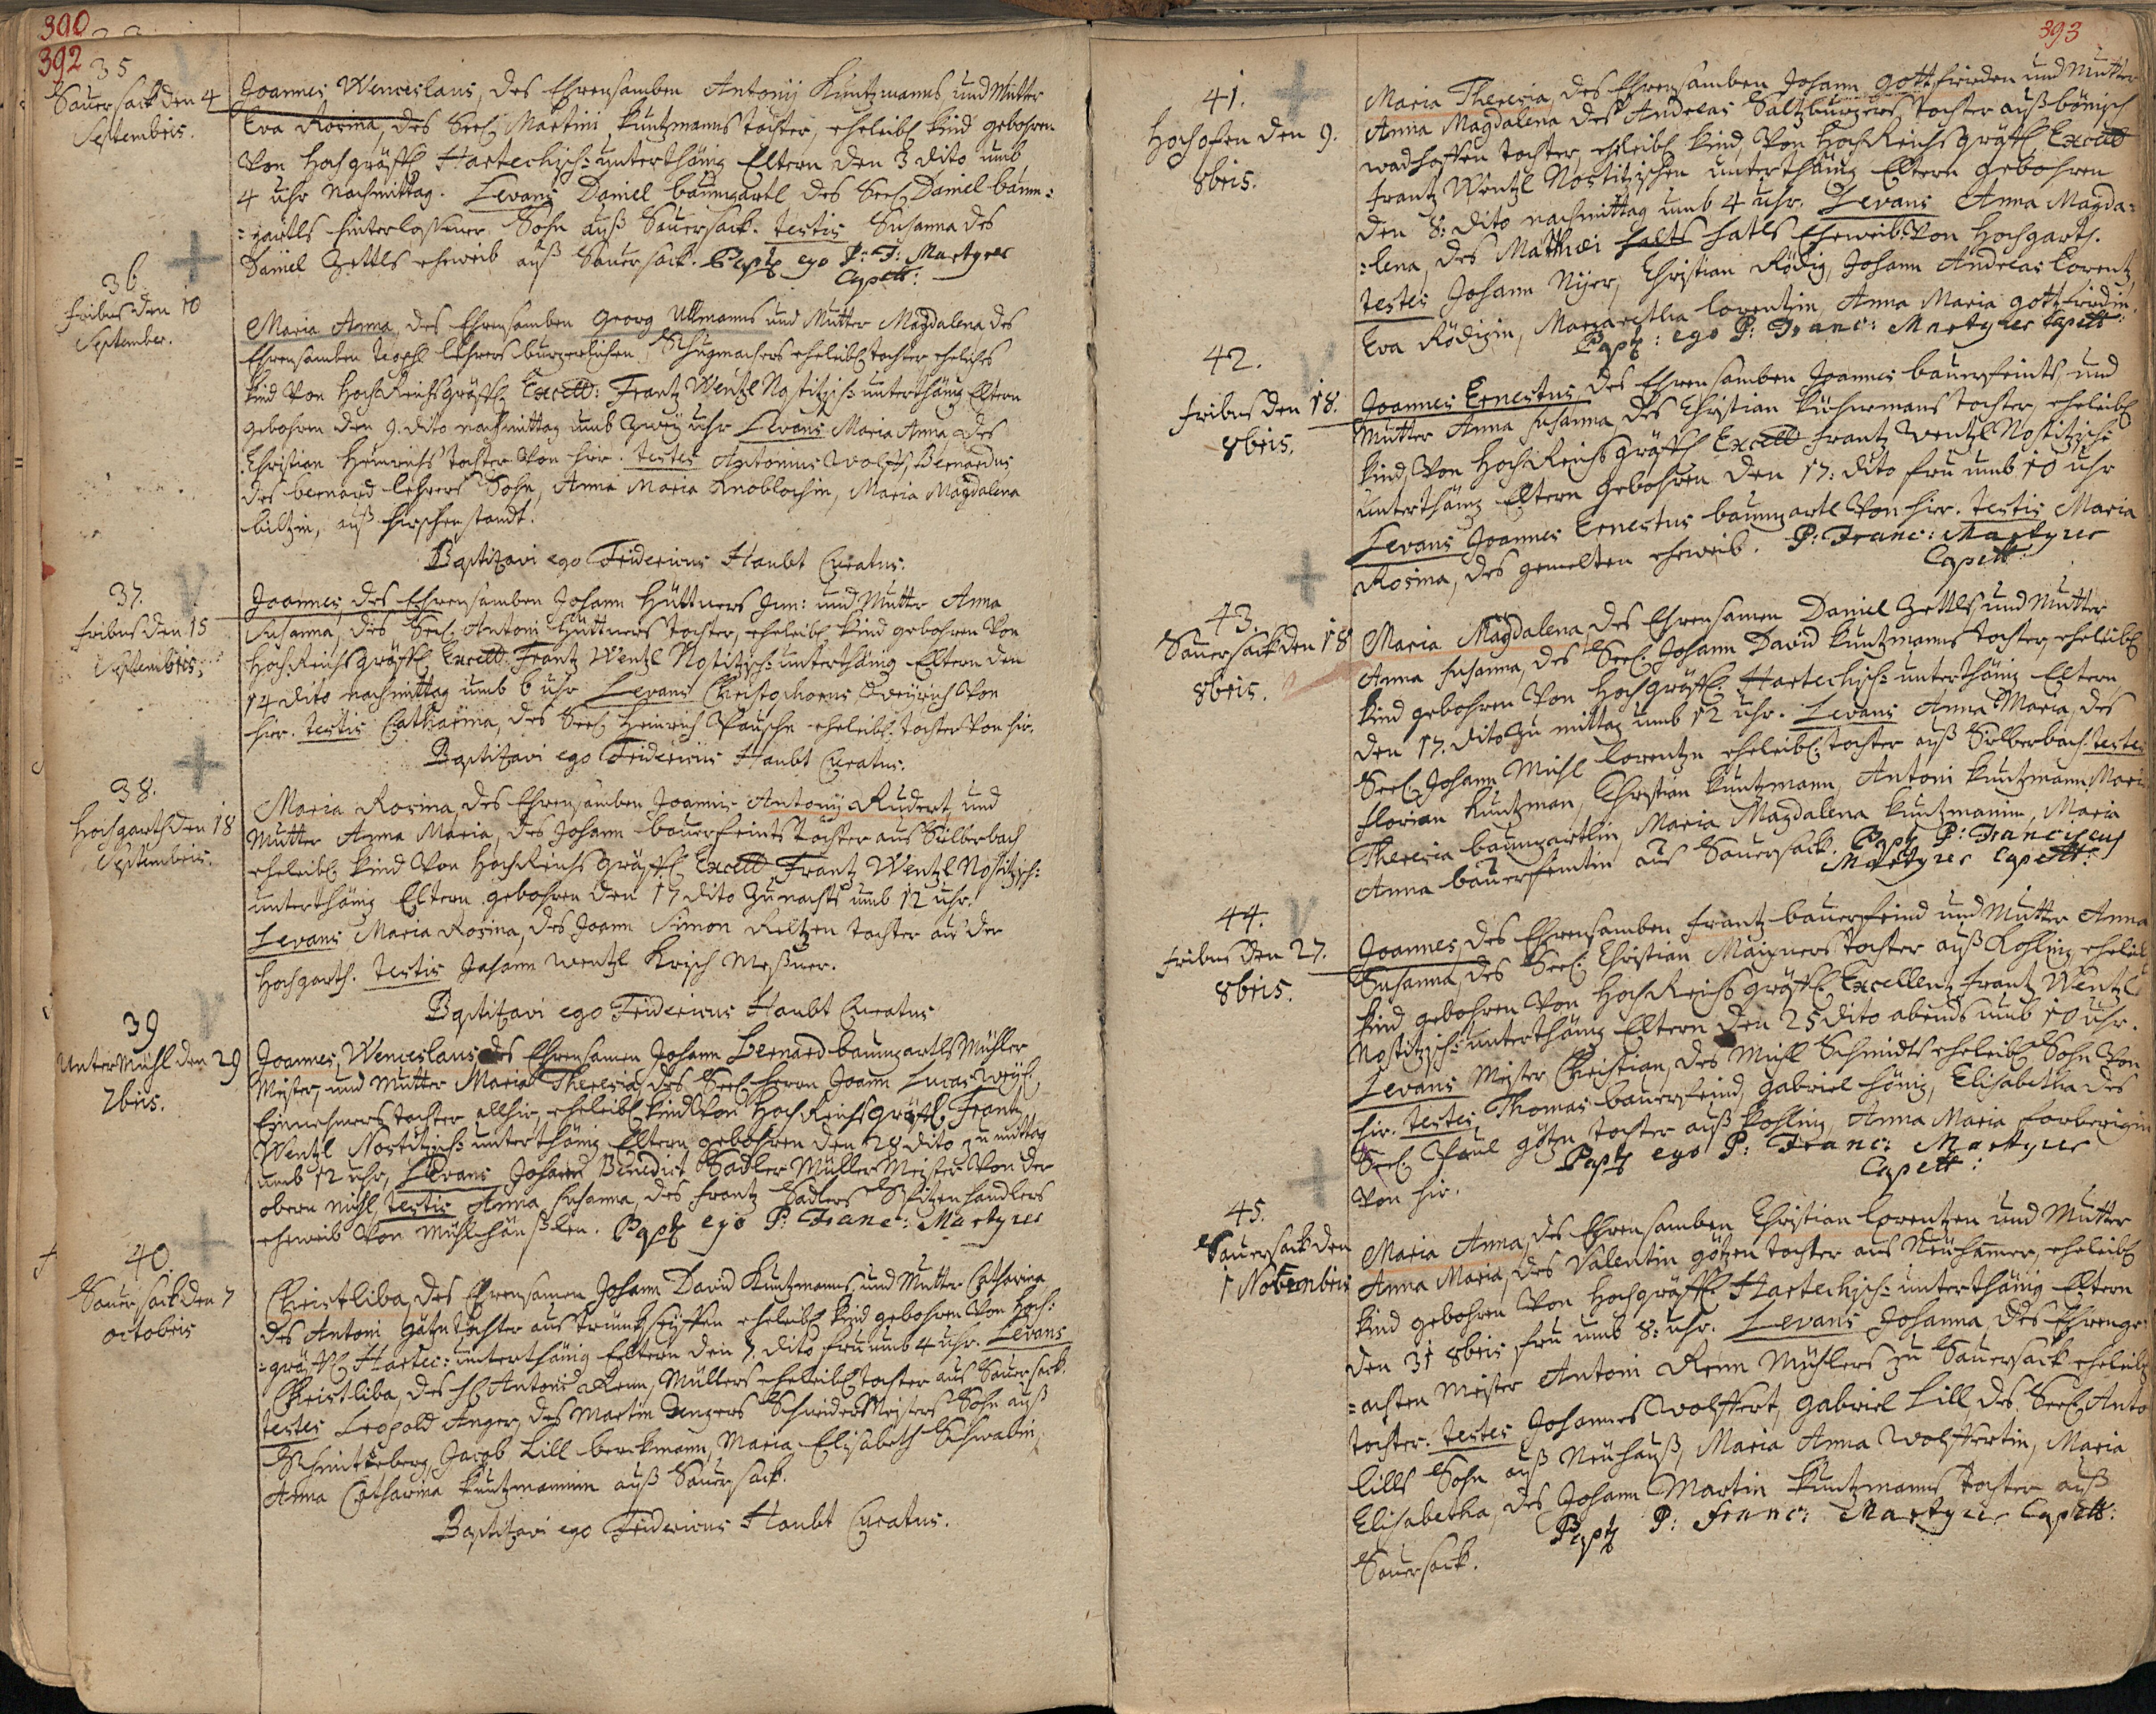 390
392
35
Sauersack den 4
Septembris.
Joannes Wenceslaus, des Ehrensamben Antonij Kuntzmanns und Mutter
Eva Rosina, des Seel. Martini Kuntzmanns tochter, eheleibl. kind gebohren
Von Hochgräffl. Hartechisch: unterthänig Eltern den 3 dito umb
4 uhr Nachmittag. Levans Daniel baumgartl des Seel. Daniel baum:
=gartls hinterlaßener Sohn auß Sauersack. testis Susanna des
Daniel Zettls eheweib auß Sauersack. Bapt. ego P: F: Martyrer
Capell:
36
fribus den 10
September.
Maria Anna, des Ehrensamben Georg Ullmanns und Mutter Magdalena des
Ehrensamben lehrers burgerlichen Schugmachers eheleibl. tochter, eheliches
kind Von HochReichsgräffl. Excell: Frantz Wentzl Nostitzisch: unterthänig Eltern
gebohren den 9. dito nachmittag umb zweÿ uhr Levans Maria Anna des
Christian Heinrichs tochter Von hier. testes Antonius Wolff, Bernardus
des bernard lehrers Sohn, Anna Maria Knoblochin, Maria Magdalena
biltzin, auß hirschenstandt.
Baptizavi ego Fridericus Haubt Curatus.
37.
fribus den 15
Septembris.
Joannes, des Ehrensamben Johann Hüttners Jun: und Mutter Anna
Susanna, des Seel. Antoni Hüttners tochter, eheleibl. kind gebohren Von
HochReichsgräffl. Excell: Frantz Wentzl Nostitzisch: unterthänig Eltern den
14 dito nachmittag umb 6 uhr Levans Christophorus Weÿrich Von
hier. testis Catharina, des Seel. Heinrich Pauschn eheleibl. tochter Von hir.
Baptizavi ego Fridericus Haubt Curatus.
38.
Hochgarth den 18
Septembris.
Maria Rosina, des Ehrensamben Joannis Antonij Rudert, und
Mutter Anna Maria, des Johann bauerfeints tochter aus Silberbach
eheleibl. kind Von HochReichsgräffl. Excell. Frantz Wentzl Nostitzisch:
unterthänig Eltern gebohren den 17 dito zu nachts umb 12 uhr.
Levans Maria Rosina, des Joann Simon Reltzen tochter aus der
Hochgarth. testis Johann Wentzl Krisch Meßner.
Baptizavi ego Fridericus Haubt Curatus
39
Unter Mühl den 29
7bris.
Joannes, Wenceslaus des Ehrensamen Johann Bernard baumgartls Mühler
Meister, und Mutter Maria Theresia, des Seel. herrn Joann Lucas Weÿß
Einnehmers tochter allhir, eheleibl. kind Von HochReichsgräffl. Frantz
Wentzl Nostitzisch: unterthänig Eltern gebohren den 28 dito zu mittag
umb 12 uhr, Levans Johann Benedict Sadler Müller Meister Von der
obern mühl, testis Anna Susanna, des Frantz Sadlers Spitzenhandlers
eheweib Von Mühlhäußlen. Bapt. ego P: Franc: Martyrer
40.
Sauersack den 7
octobris
Christliba, des Ehrensamen Johann David Kuntzmanns, und Mutter Catharina
des Antoni Götzn tochter aus trinckseiffen eheleibl. kind gebohren Von Hoch:
=gräffl. Hartec: unterthänig Eltern den 7. dito fru umb 4 uhr. Levans
Christliba, des H. Antoni Renn, Müllers eheleibl. tochter aus Sauersack.
testes Leopold Anger, des Martin Angers Schneider Meisters Sohn auß
Schmittseberg, Jacob Lill berckmann, Maria Elisabeth Schwabin,
Anna Catharina Kuntzmannin auß Sauersack.
Baptizavi ego Fridericus Haubt Curatus.
393
41.
Hochofen den 9.
8bris.
Maria Theresia, des Ehrensamben Johann Gottfrieden und Mutter
Anna Magdalena des Andreas Saltzburgers tochter auß bömisch
wadhoffen tochter, eheleibl. kind, Von HochReichsgräffl. Excell
Frantz Wentzl Nostitzischen unterthänig Eltern gebohren
den 8: dito nachmittag umb 4 uhr. Levans Anna Magda:
=lena, des Mathæi hatls Eheweib Von Hochgarth.
testes Johann Nijer, Christian Rödig, Johann Andreas Lorentz,
Eva Rödigin, Margaretha Lorentzin, Anna Maria gottfriedin.
Bapt: ego P: Franc: Martyrer Capell:
42.
fribus den 18.
8bris.
Joannes Ernestus, des Ehrensamben Joannes bauerfeints, und
Mutter Anna Susanna, des Christian Küchermans tochter, eheleibl.
kind, Von HochReichsgräffl. Excell Frantz Wentzl Nostitzisch:
unterthänig Eltern gebohren den 17: dito fru umb 10 uhr
Levans Joannes Ernestus baumgartl Von hir. testis Maria
Rosina, des gemelten eheweib. P: Franc: Martyrer
Capell:
43.
Sauersack den 18
8bris.
Maria Magdalena, des Ehrensamen Daniel Zettls, und Mutter
Anna Susanna, des Seel. Johann David Kuntzmanns tochter, eheleibl.
kind gebohren Von Hochgräffl. Hartechisch: unterthänig Eltern
den 17. dito zu mittag umb 12 uhr. Levans Anna Maria, des
Seel. Johann Michl Lorentzn eheleibl. tochter auß Silberbach. testes
Florian Kuntzman, Christian Kuntzmann, Antoni Kuntzmann, Maria
Theresia baumgartlin, Maria Magdalena Kuntzmanin, Maria
Anna bauerfeintin aus Sauersack. Bapt. P: Franciscus
Martyrer Capell:
44.
fribus den 27.
8bris.
Joannes, des Ehrensamben Frantz bauerfeind und Mutter Anna
Susanna, des Seel. Christian Maixners tochter auß Kohling, eheleibl.
kind gebohren Von HochReichsgräffl. Excellentz Frantz Wentzl
Nostitzisch: unterthänig Eltern den 25 dito abends umb 10 uhr.
Levans Meister Christian, des Michl Schmidts eheleibl. Sohn Von
hir. testes Thomas bauerfeind, Gabriel hönig, Elisabetha des
Seel. Paul Götzn tochter auß Kohling, Anna Maria Forberigin
Von hir.
Bapt. ego P: Franc: Martyrer
Capell:
45.
Sauersack den
1 Novembris
Maria Anna, des Ehrensamben Christian Lorentzen und Mutter
Anna Maria, des Valentin götzen tochter aus Neuhamer, eheleibl.
kind gebohren Von Hochgräffl. Hartechisch: unterthänig Eltern
den 31 8bris fru umb 8: uhr. Levans Johanna des Ehrenge:
=achten Meister Antoni Renn Mühlers zu Sauersack eheleibl.
tochter. testes Johannes Wolffert, Gabriel Lill des Seel. Anto
lills Sohn auß Neuhauß, Maria Anna Wolffertin, Maria
Elisabetha, des Johann Martin Kuntzmanns tochter auß
Sauersack.
Bapt. P: Franc: Martyrer Capell: